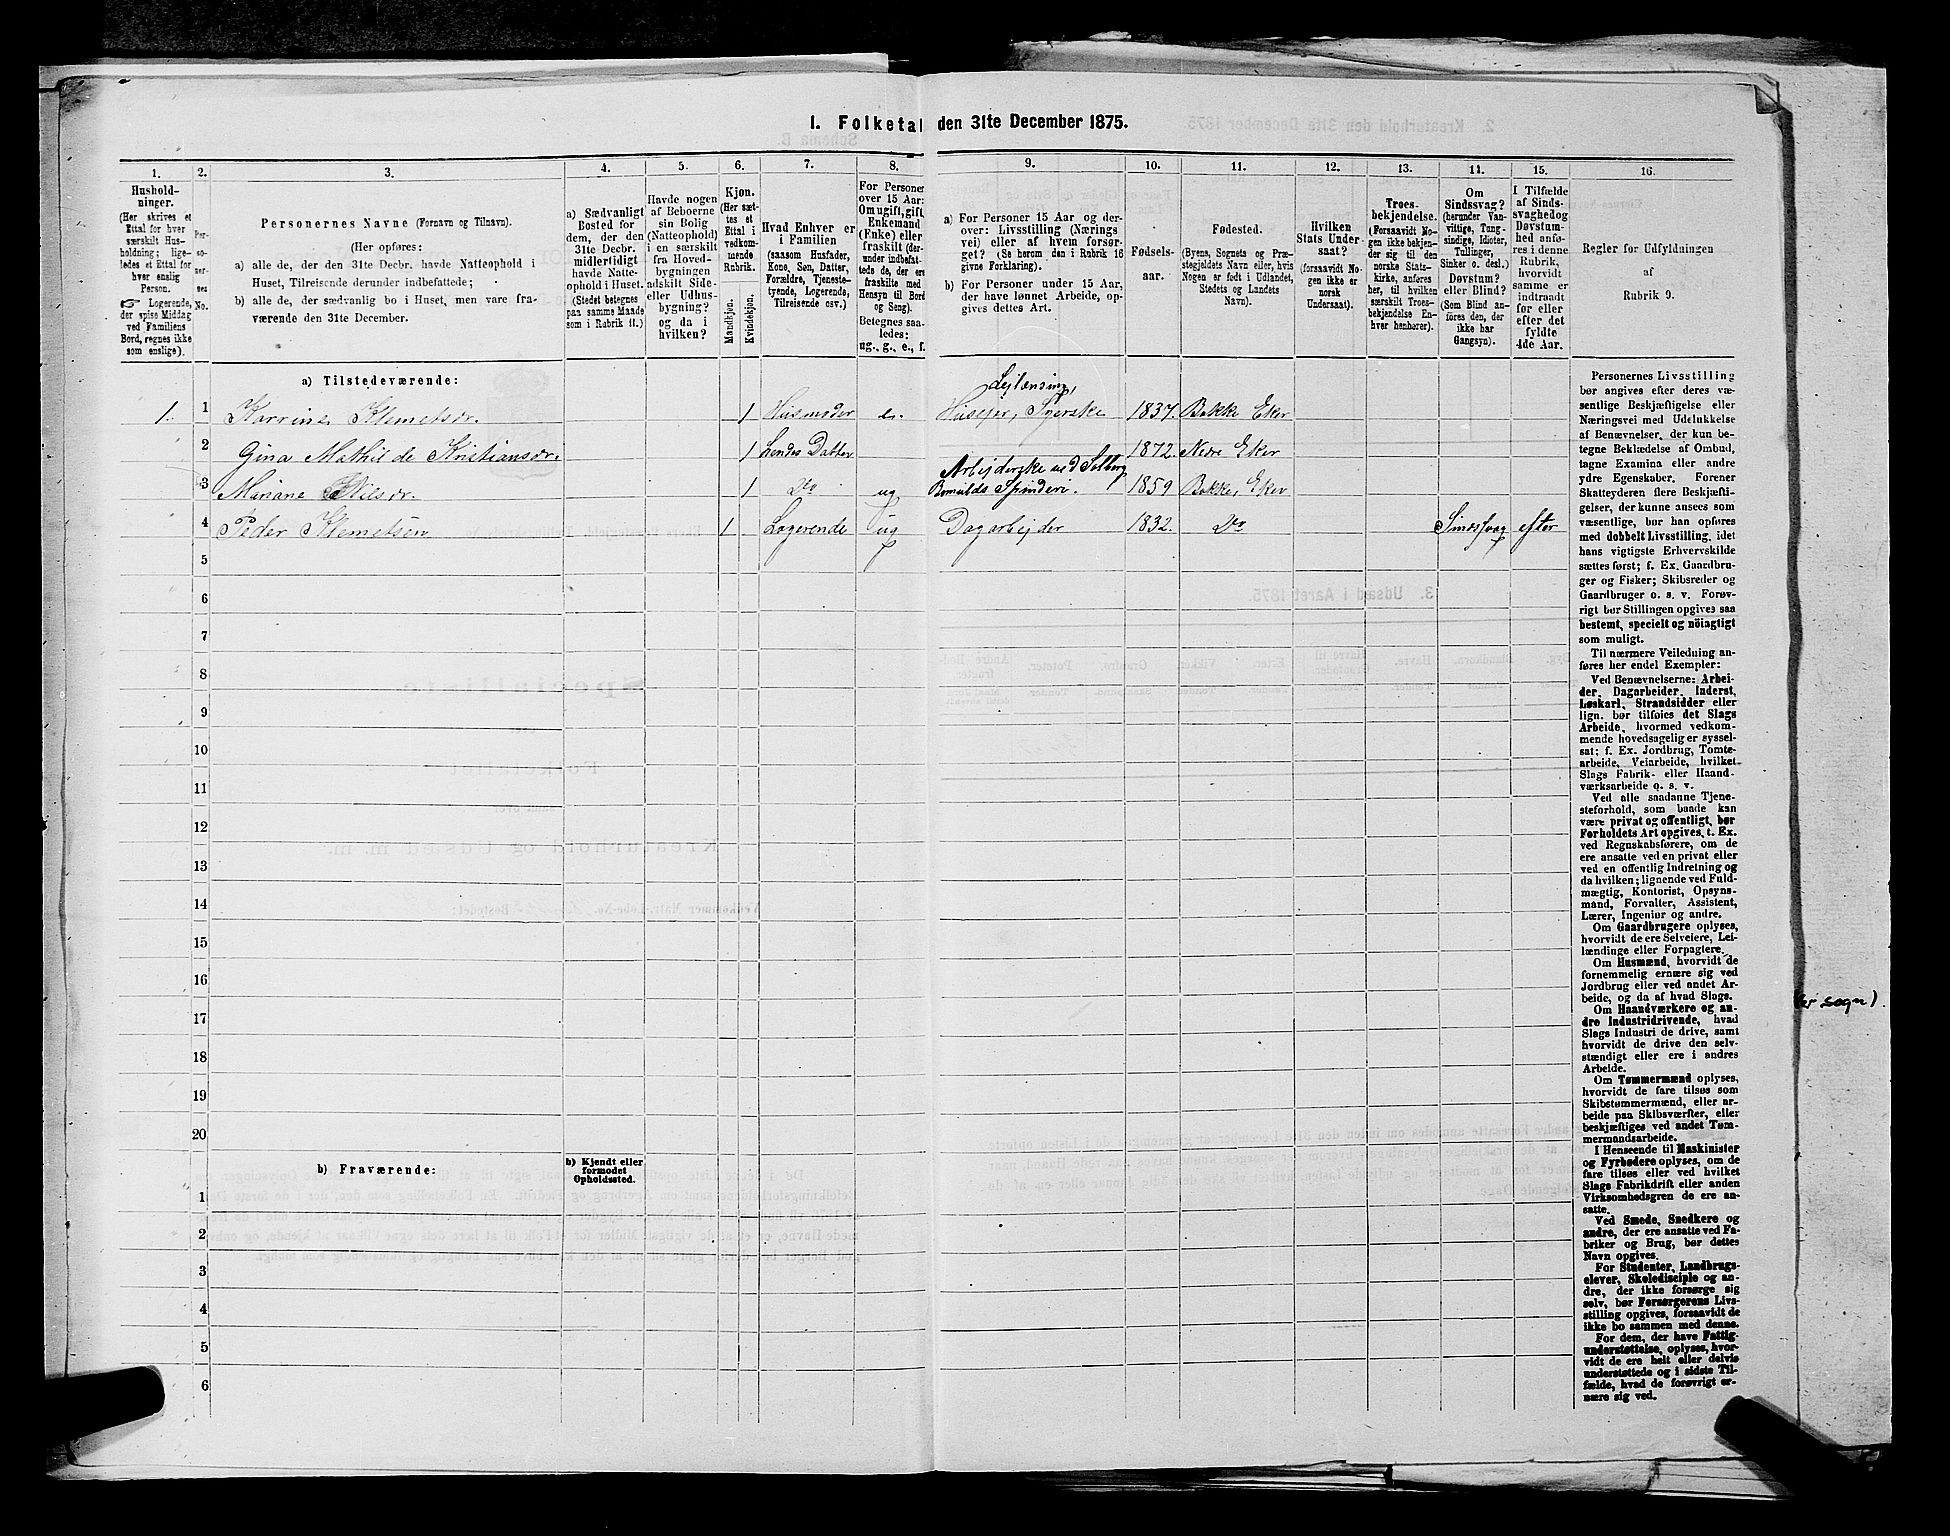 I. Folketal den 31te December 1875.
1.
2.
3.
4.
5.
6.
7.
8.
9.
10.
11.
12.
13.
14.
15.
16.
Hushold-
ninger.
(Her skrives et
Ettal for hver
særskilt Hus-
holdning; lige-
ledes et Ettal for
hver enslig
Person.
☞ Logerende,
der spise Middag
ved Familiens
Bord, regnes ikke
som enslige).
Per-
so-
ner-
nes-
No.
Personernes Navne (Fornavn og Tilnavn).
(Her opføres:
a) alle de, der den 31te Decbr. havde Natteophold i
Huset, Tilreisende derunder indbefattede;
b) alle de, der sædvanlig bo i Huset, men vare fra-
værende den 31te December.
a) Sædvanligt
Bosted for
dem, der den
31te Decbr.
midlertidigt
havde Natte-
ophold i Huset.
(Stedet betegnes
paa samme Maade
som i Rubrik 11.)
Havde nogen
af Beboerne
sin Bolig
(Natteophold)
i en særskilt
fra Hoved-
bygningen
adskilt Side-
eller Udhus-
bygning?
og da i
hvilken?
Kjøn.
(Her sæt-
tes et
Ettal i
vedkom-
mende
Rubrik.
Mandkjøn.
Kvindekjøn.
Hvad Enhver er
i Familien
(saasom Husfader,
Kone, Søn, Datter,
Forældre, Tjeneste-
tyende, Logerende,
Tilreisende osv.)
For Personer
over 15 Aar:
Om ugift, gift,
Enkemand
(Enke) eller
fraskilt (der-
under indbefat-
tede de, der ere
fraskilte med
Hensyn til Bord
og Seng).
Betegnes saa-
ledes:
ug., g., e., f.
a) For Personer 15 Aar og der-
over: Livsstilling (Nærings
vei) eller af hvem forsør-
get? (Se herom den i Rubrik 16
givne Forklaring).
b) For Personer under 15 Aar,
der have lønnet Arbeide, op-
gives dettes Art.
Fødsels-
aar.
Fødested.
(Byens, Sognets og Præ-
stegjeldets Navn eller, hvis
Nogen er født i Udlandet,
Stedets og Landets
Navn).
Hvilken
Stats Under-
saat?
(forsaavidt No-
gen ikke er
norsk
Undersaat).
Troes-
bekjendelse.
(Forsaavidt No-
gen ikke bekjen-
der sig til den
norske Stats-
kirke, anføres
her, til hvilken
særskilt Troes-
bekjendelse En-
hver henhører).
Om
Sindssvag?
(herunder Van-
vittige, Tung-
sindige, Idioter,
Tullinger,
Sinker o. desl.)
Døvstum?
eller Blind?
(Som Blind an-
føres den, der
ikke har
Gangsyn).
I Tilfælde
af Sinds-
svaghed og
Døvstum-
hed anfø-
res i denne
Rubrik,
hvorvidt
samme er
indtraadt
før eller
efter det
fyldte
4de Aar.
Regler for Udfyldningen
af
Rubrik 9.
a) Tilstedeværende:
Lejlænding,
1. 1 Karrine Klemetsdr. 1 Husmoder e. Huseier, Sperske 1837. Bakke Eker
2 Gina Mathilde Kristiansdr. 1 hendes Datter 1872. Nedre Eker
Arbejderske ved Solberg
3 Mariane Nilsdr. 1 Do ug Bomulds Spinderi. 1859 Bakke, Eker
4 Peder Klemetsen 1 Logerende ug Dagarbejder 1832. Do Sindssvag efter
5
6
7
8
9
10
11
12
13
14
15
16
17
18
19
20
b) Fraværende:
b) Kjendt eller
formodet
Opholdssted.
1
2
3
4
5
6
Personernes Livsstilling
bør angives efter deres væ-
sentlige Beskjæftigelse eller
Næringsvei med Udelukkelse
af Benævnelser, der kun be-
tegne Beklædelse af Ombud,
tagne Examina eller andre
ydre Egenskaber. Forener
Skatteyderen flere Beskjæfti-
gelser, der kunne ansees som
væsentlige, bør han opføres
med dobbelt Livsstilling, idet
hans vigtigste Erhvervskilde
sættes først; f. Ex. Gaardbru-
ger og Fisker; Skibsreder og
Gaardbruger o. s. v. Forøv-
rigt bør Stillingen opgives saa
bestemt, specielt og nøiagtigt
som muligt.
Til nærmere Veiledning an-
føres her endel Exempler:
Ved Benævnelserne: Arbei-
der, Dagarbeider, Inderst,
Løskarl, Strandsidder eller
lign. bør tilføies det Slags
Arbeide, hvormed vedkom-
mende hovedsagelig er syssel-
sat; f. Ex. Jordbrug, Tomte-
arbeide, Veiarbeide, hvilket
Slags Fabrik- eller Haand-
værksarbeide o. s. v.
Ved alle saadanne Tjene-
steforhold, som baade kan
være privat og offentligt, bør
Forholdets Art opgives, t. Ex.
ved Regnskabsførere, om de
ere ansatte ved en privat eller
ved en offentlig Indretning og
da hvilken; lignende ved Fuld-
mægtig, Kontorist, Opsyns-
mand, Forvalter, Assistent,
Lærer, Ingeniør og andre.
Om Gaardbrugere oplyses,
hvorvidt de ere Selveiere, Lei-
lændinge eller Forpagtere.
Om Husmænd, hvorvidt de
fornemmelig ernære sig ved
Jordbrug eller ved andet Ar-
beide, og da af hvad Slags.
Om Haandværkere og an-
dre Industridrivende, hvad
Slags Industri de drive, samt
hvorvidt de drive den selv-
stændigt eller ere i andres
Arbeide.
Om Tømmermænd oplyses,
hvorvidt de fare tilsøs som
Skibstømmermænd, eller ar-
beide paa Skibsværfter, eller
beskjæftiges ved andet Tøm-
mermandsarbeide.
I Henseende til Maskinister
og Fyrbødere oplyses, om de
fare tilsøs eller ved hvilket
Slags Fabrikdrift eller anden
Virksomhedsgren de ere an-
satte.
Ved Smede, Snedkere og
andre, der ere ansatte ved Fa-
briker og Brug, bør dettes
Navn opgives.
For Studenter, Landbrugs-
elever, Skoledisciple og an-
dre, der ikke forsørge sig
selv, bør Forsørgerens Livs-
stilling opgives, forsaavidt de
ikke bo sammen med denne.
For dem, der have Fattig-
understøttelse, oplyses, hvor-
vidt de ere helt eller delvis
understøttede og i sidste Til-
fælde, hvad de forøvrigt er-
nære sig ved.
sogn).